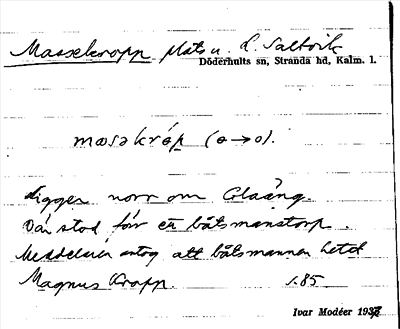 Massekropp plats u. L. Saltvik
Döderhults sn, Stranda hd, Kalm. l.
masəkróp (o→o).
Ligger norr om Glaäng.
Där stod förr ett båtsmanstorp.
Meddelaren antog att båtsmannen hetat
Magnus Kropp. s. 85
Ivar Modéer 1932